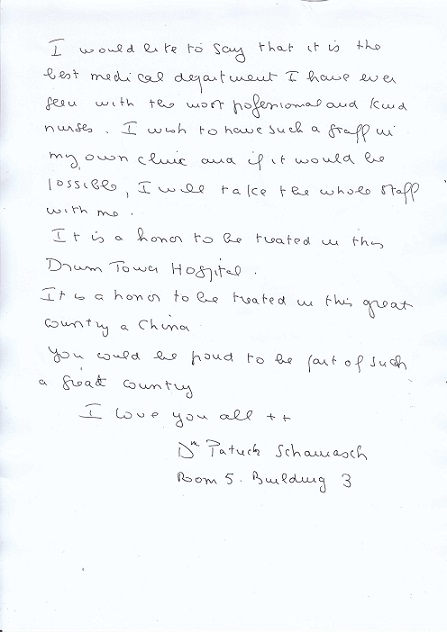 I would like to say that it is the
best medical department I have ever
seen with the most pofessional and kind
nurses. I wish to have such a staff in
my own clinic and if it would be
possible, I will take the whole staff
with me.
It is a honor to be treated in this
Drum Tower Hospital.
It is a honor to be treated in this great
country a China
You could be poud to be part of such
a great country
I love you all ++
Dr Patrick Schamasch
Room 5. Building 3